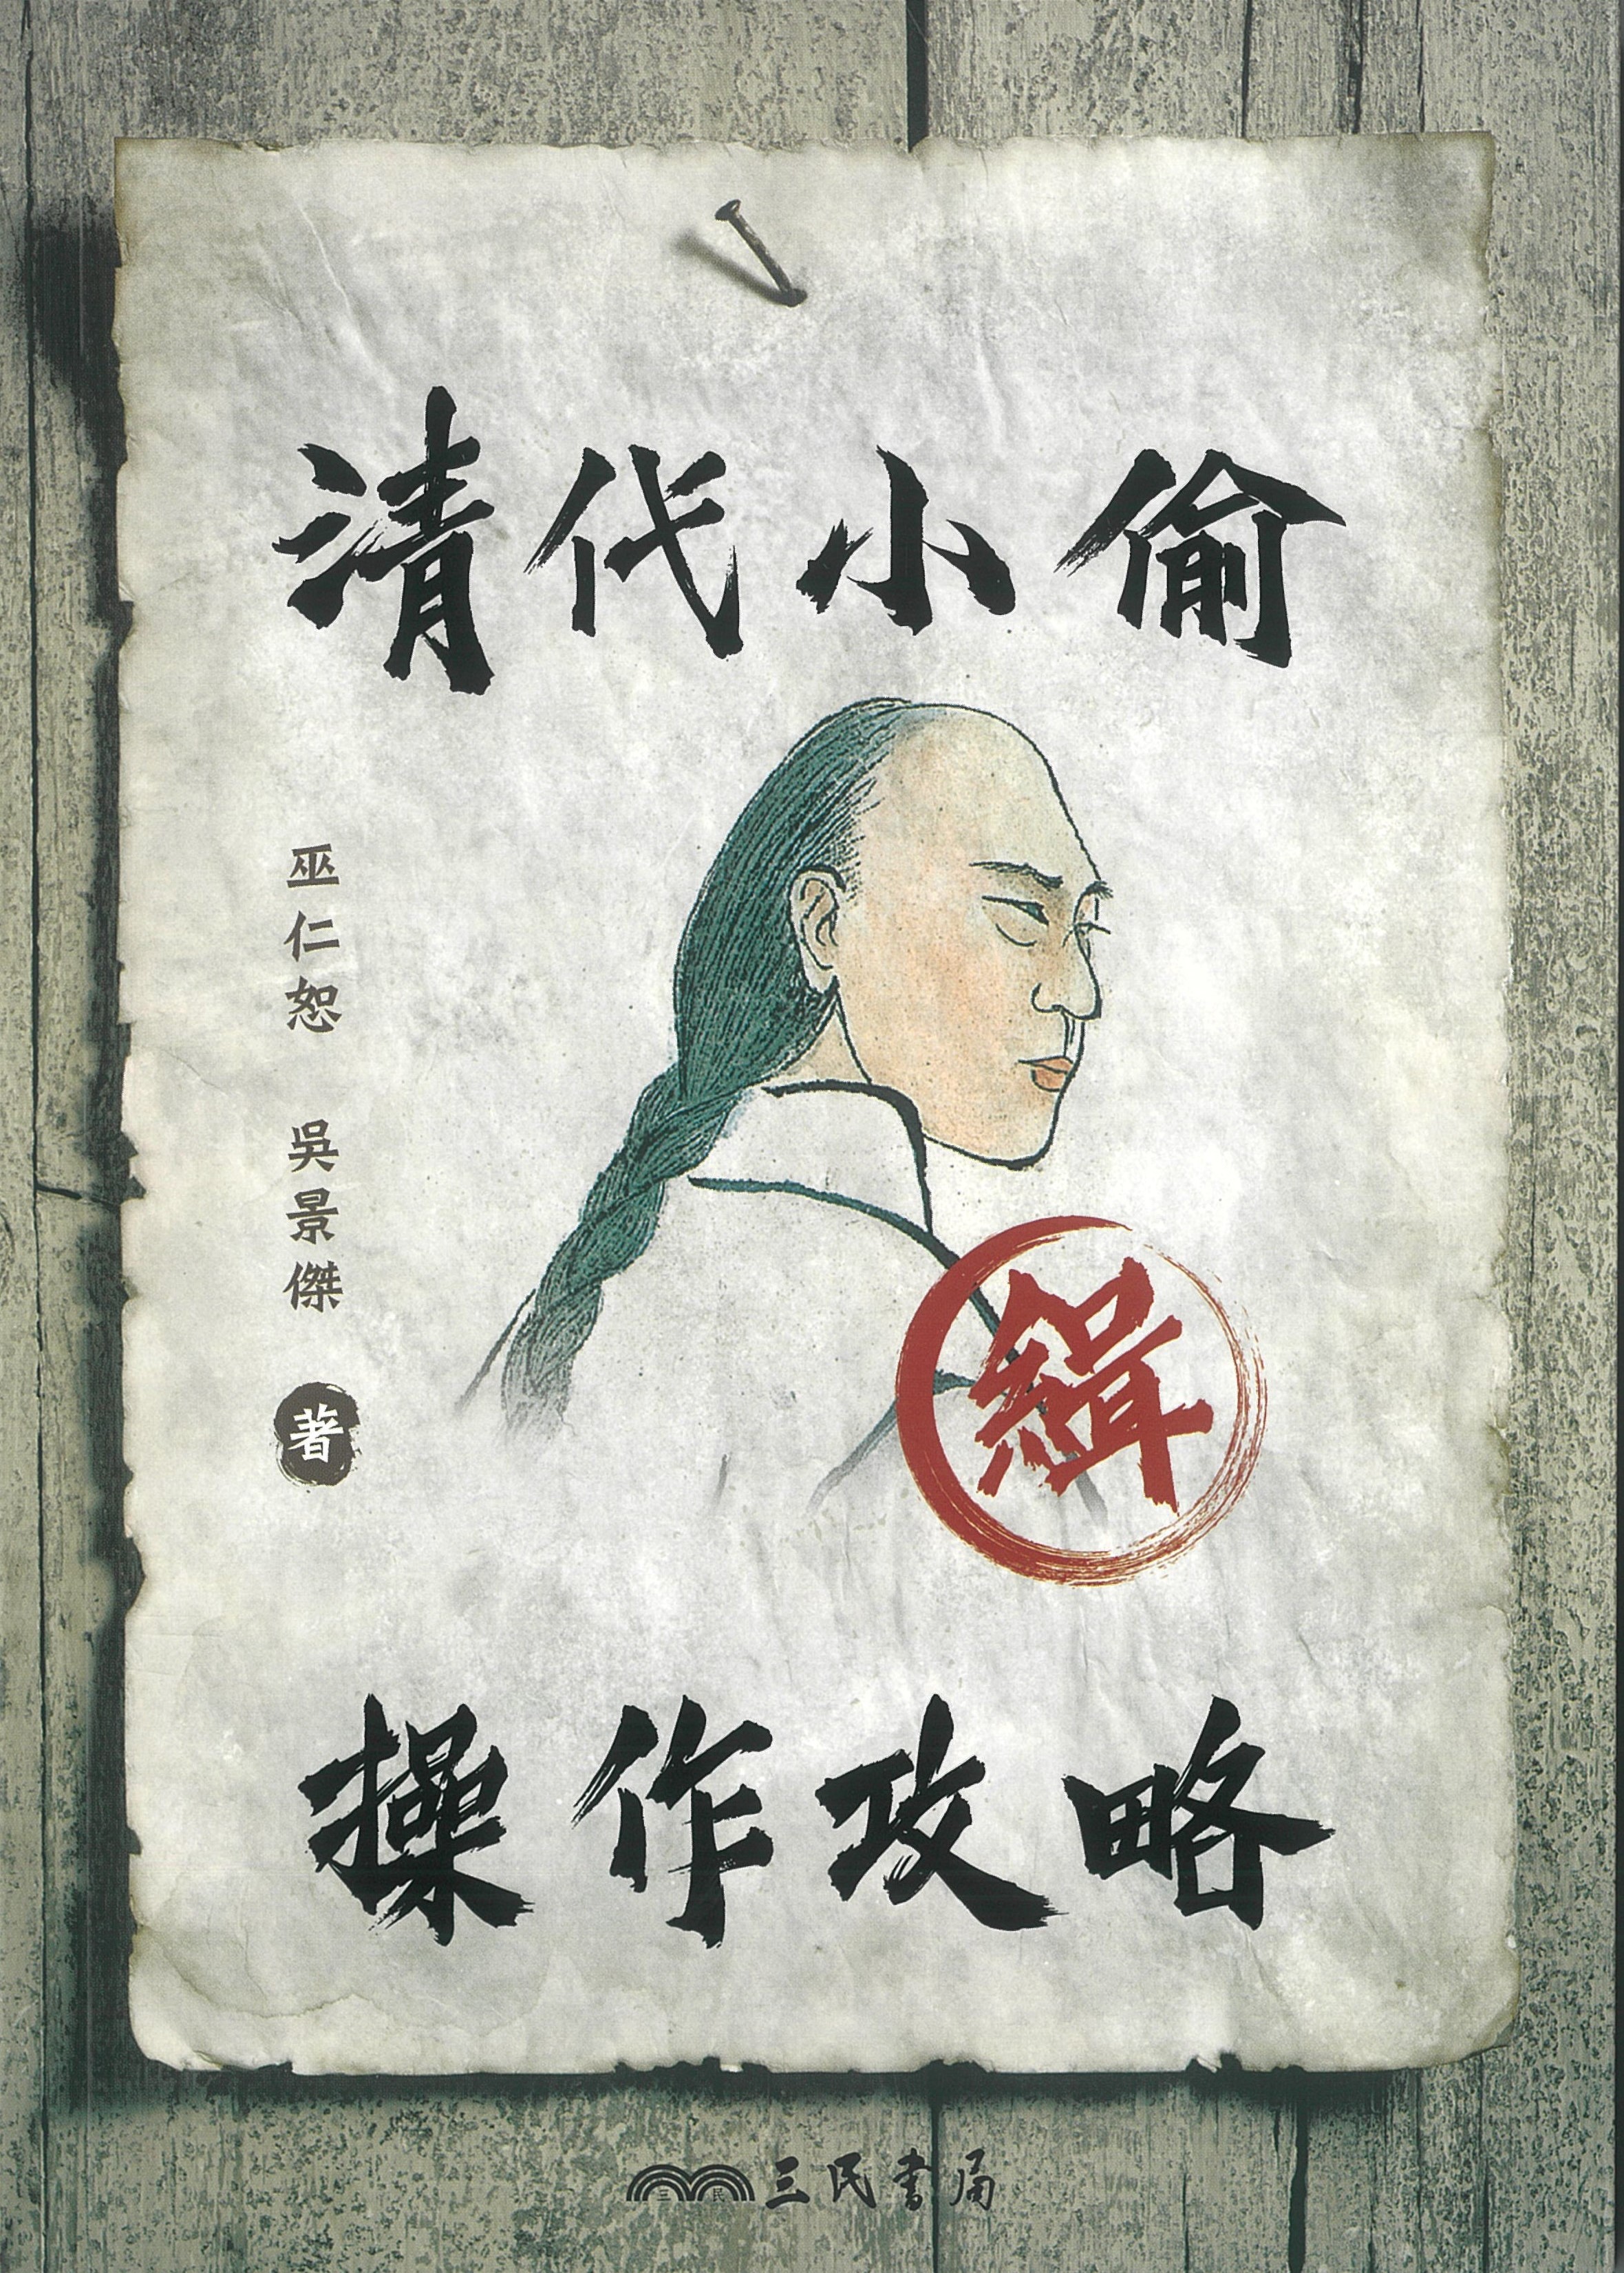 清代小偷
巫仁恕 吳景傑
著
緝
操作攻略
三民 三民書局